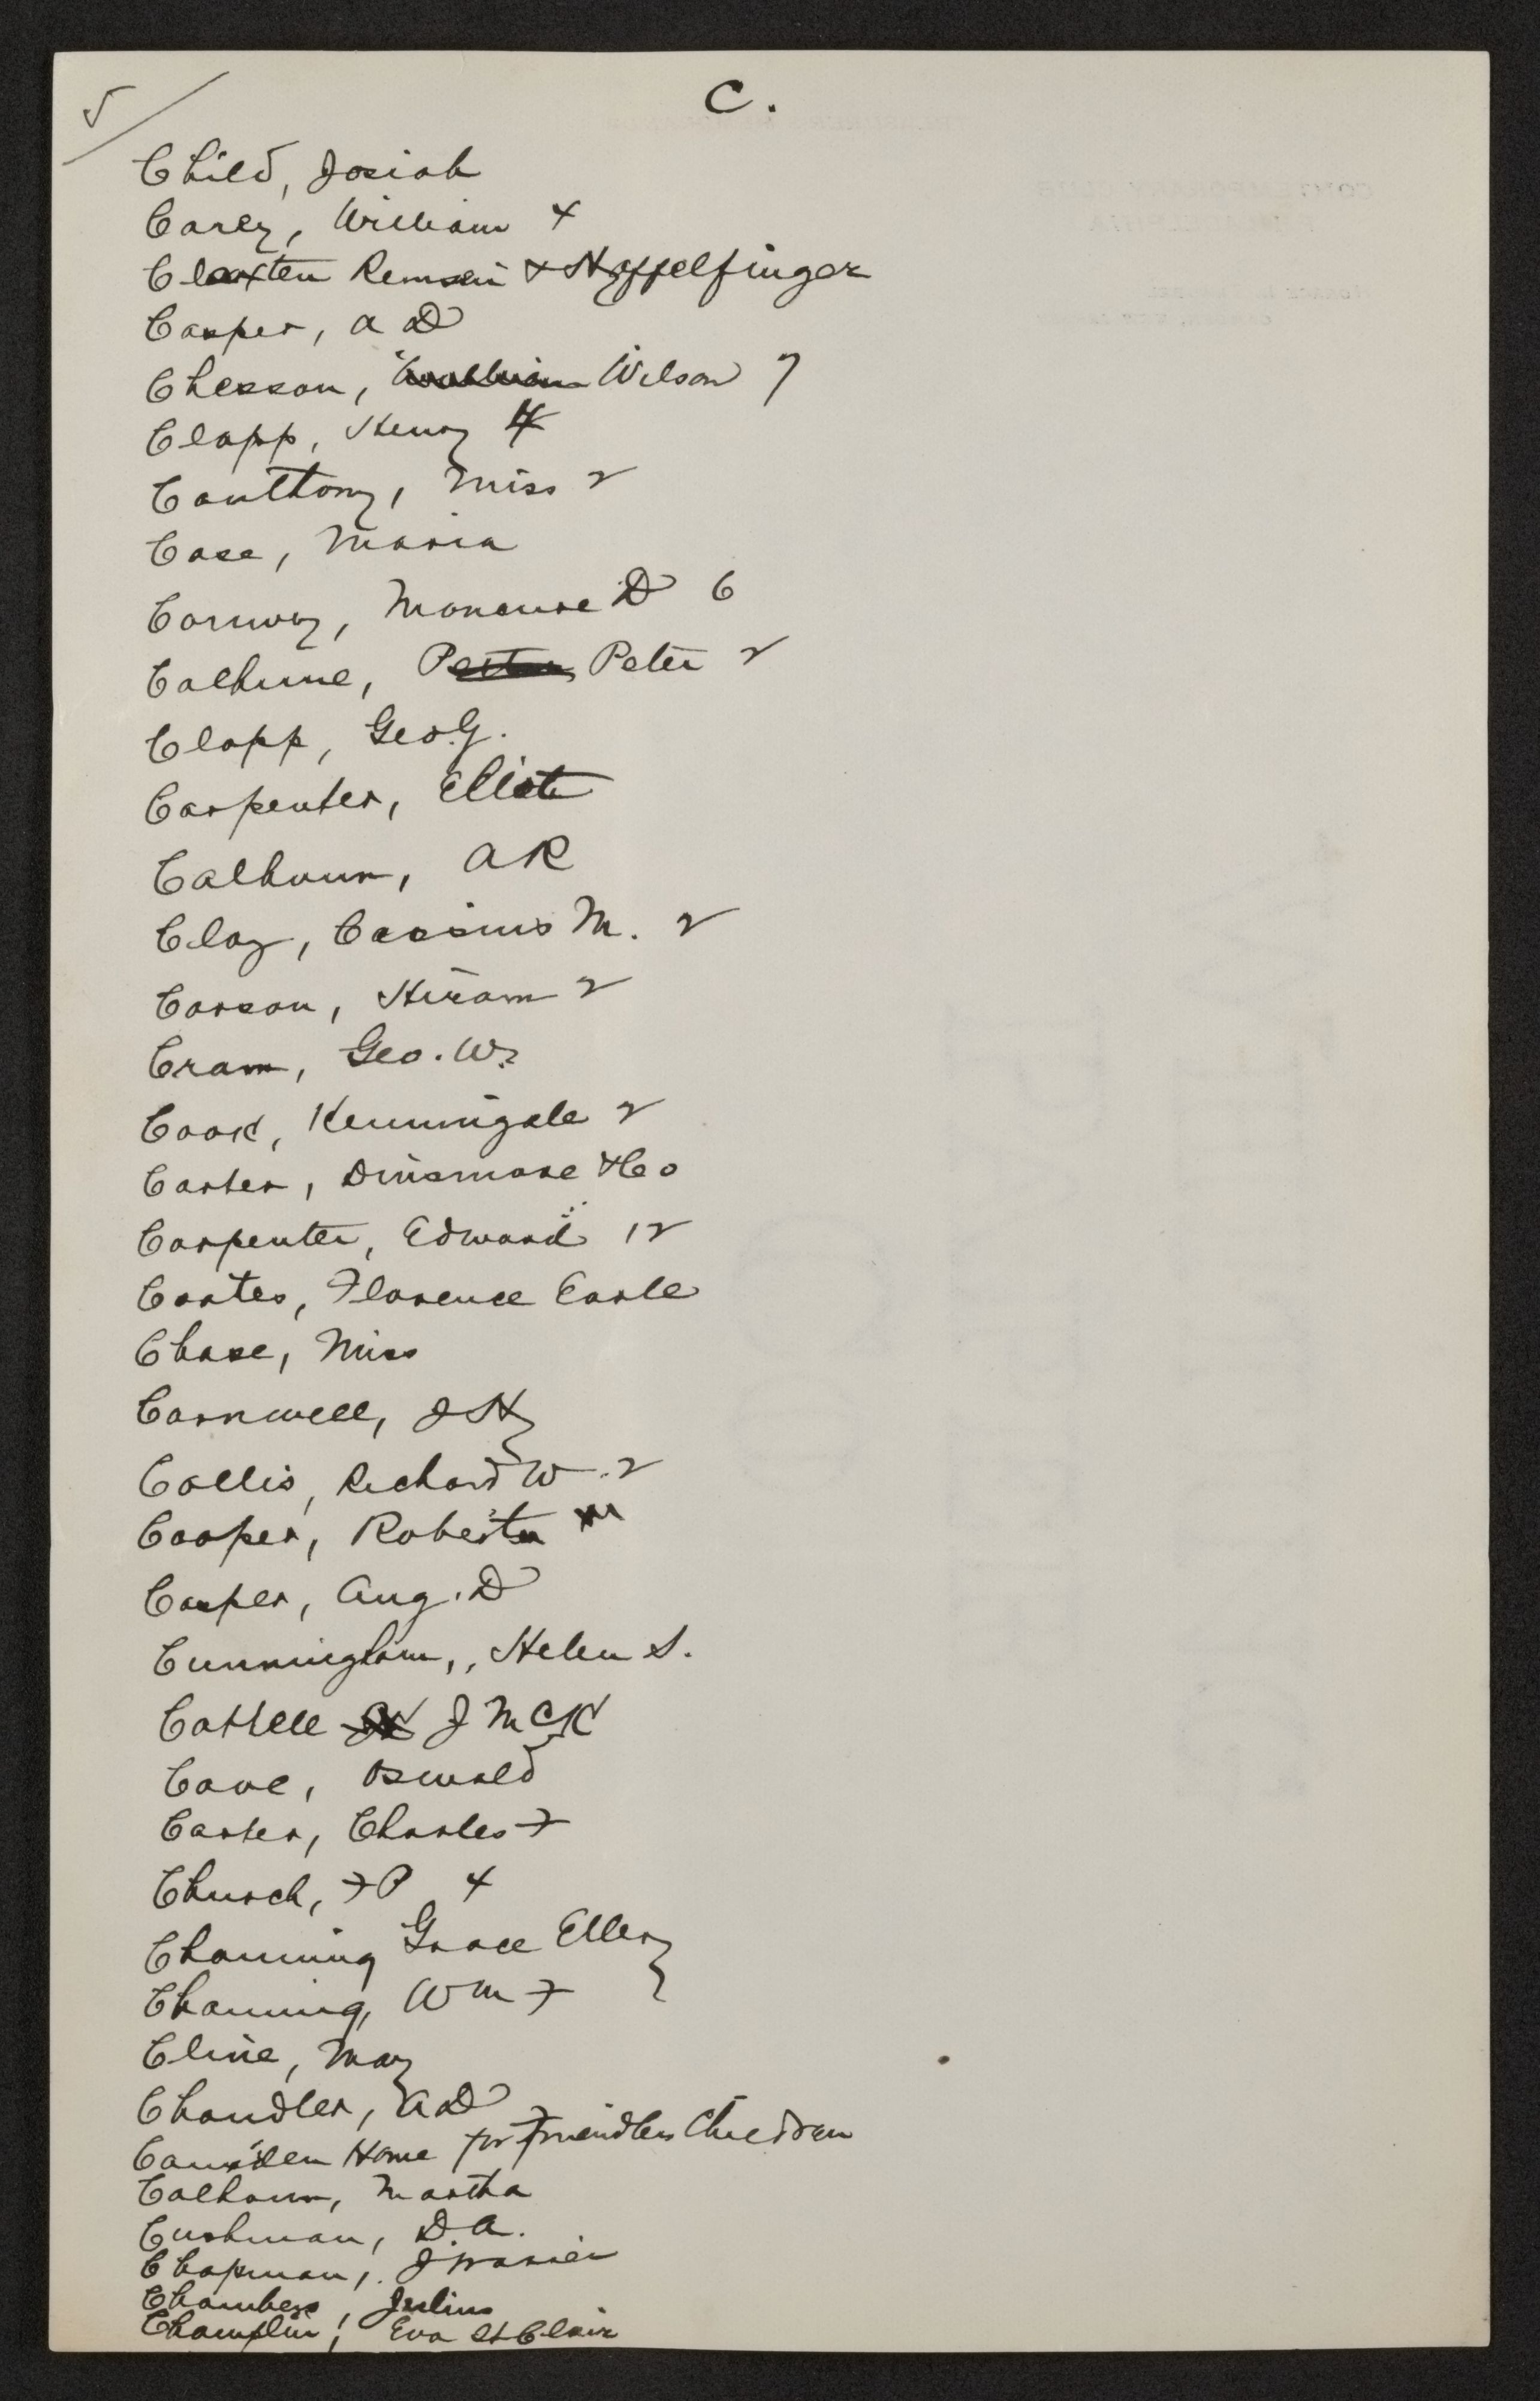 5
C.
Child, Josiah
Carey, William 4
Claxten Remsen & Haffelfinger
Casper, A D
Chesson, Wilson 7
Clapp, Henry 4
Cauthony, Miss 2
Case, Maria
Conway, Moncure D 6
Calhune, Peter 2
Clapp, Geo G.
Carpenter, Eliot
Calhoun, A R
Clay, Cassius M. 2
Corson, Hiram 2
Cram, Geo. W.
Cook, Kenningale 2
Carter, Dinsmore & Co
Carpenter, Edward 12
Coates, Florence Earle
Chase, Miss
Cornwell, J H
Collis, Richard W. 2
Cooper, Robert M
Casper, Aug. D
Cunningham,, Helen S.
Cattell J McK
Cave, Oswald
Carter, Charles F
Church, F P 4
Channing Grace Ellery
Channing, Wm F
Cline, May
Chandler, A D
Camden Home for Friendless Children
Calhoun, Martha
Cushman, D. A.
Chapman, J
Chambers, Julius
Champlin, Eva St Clair